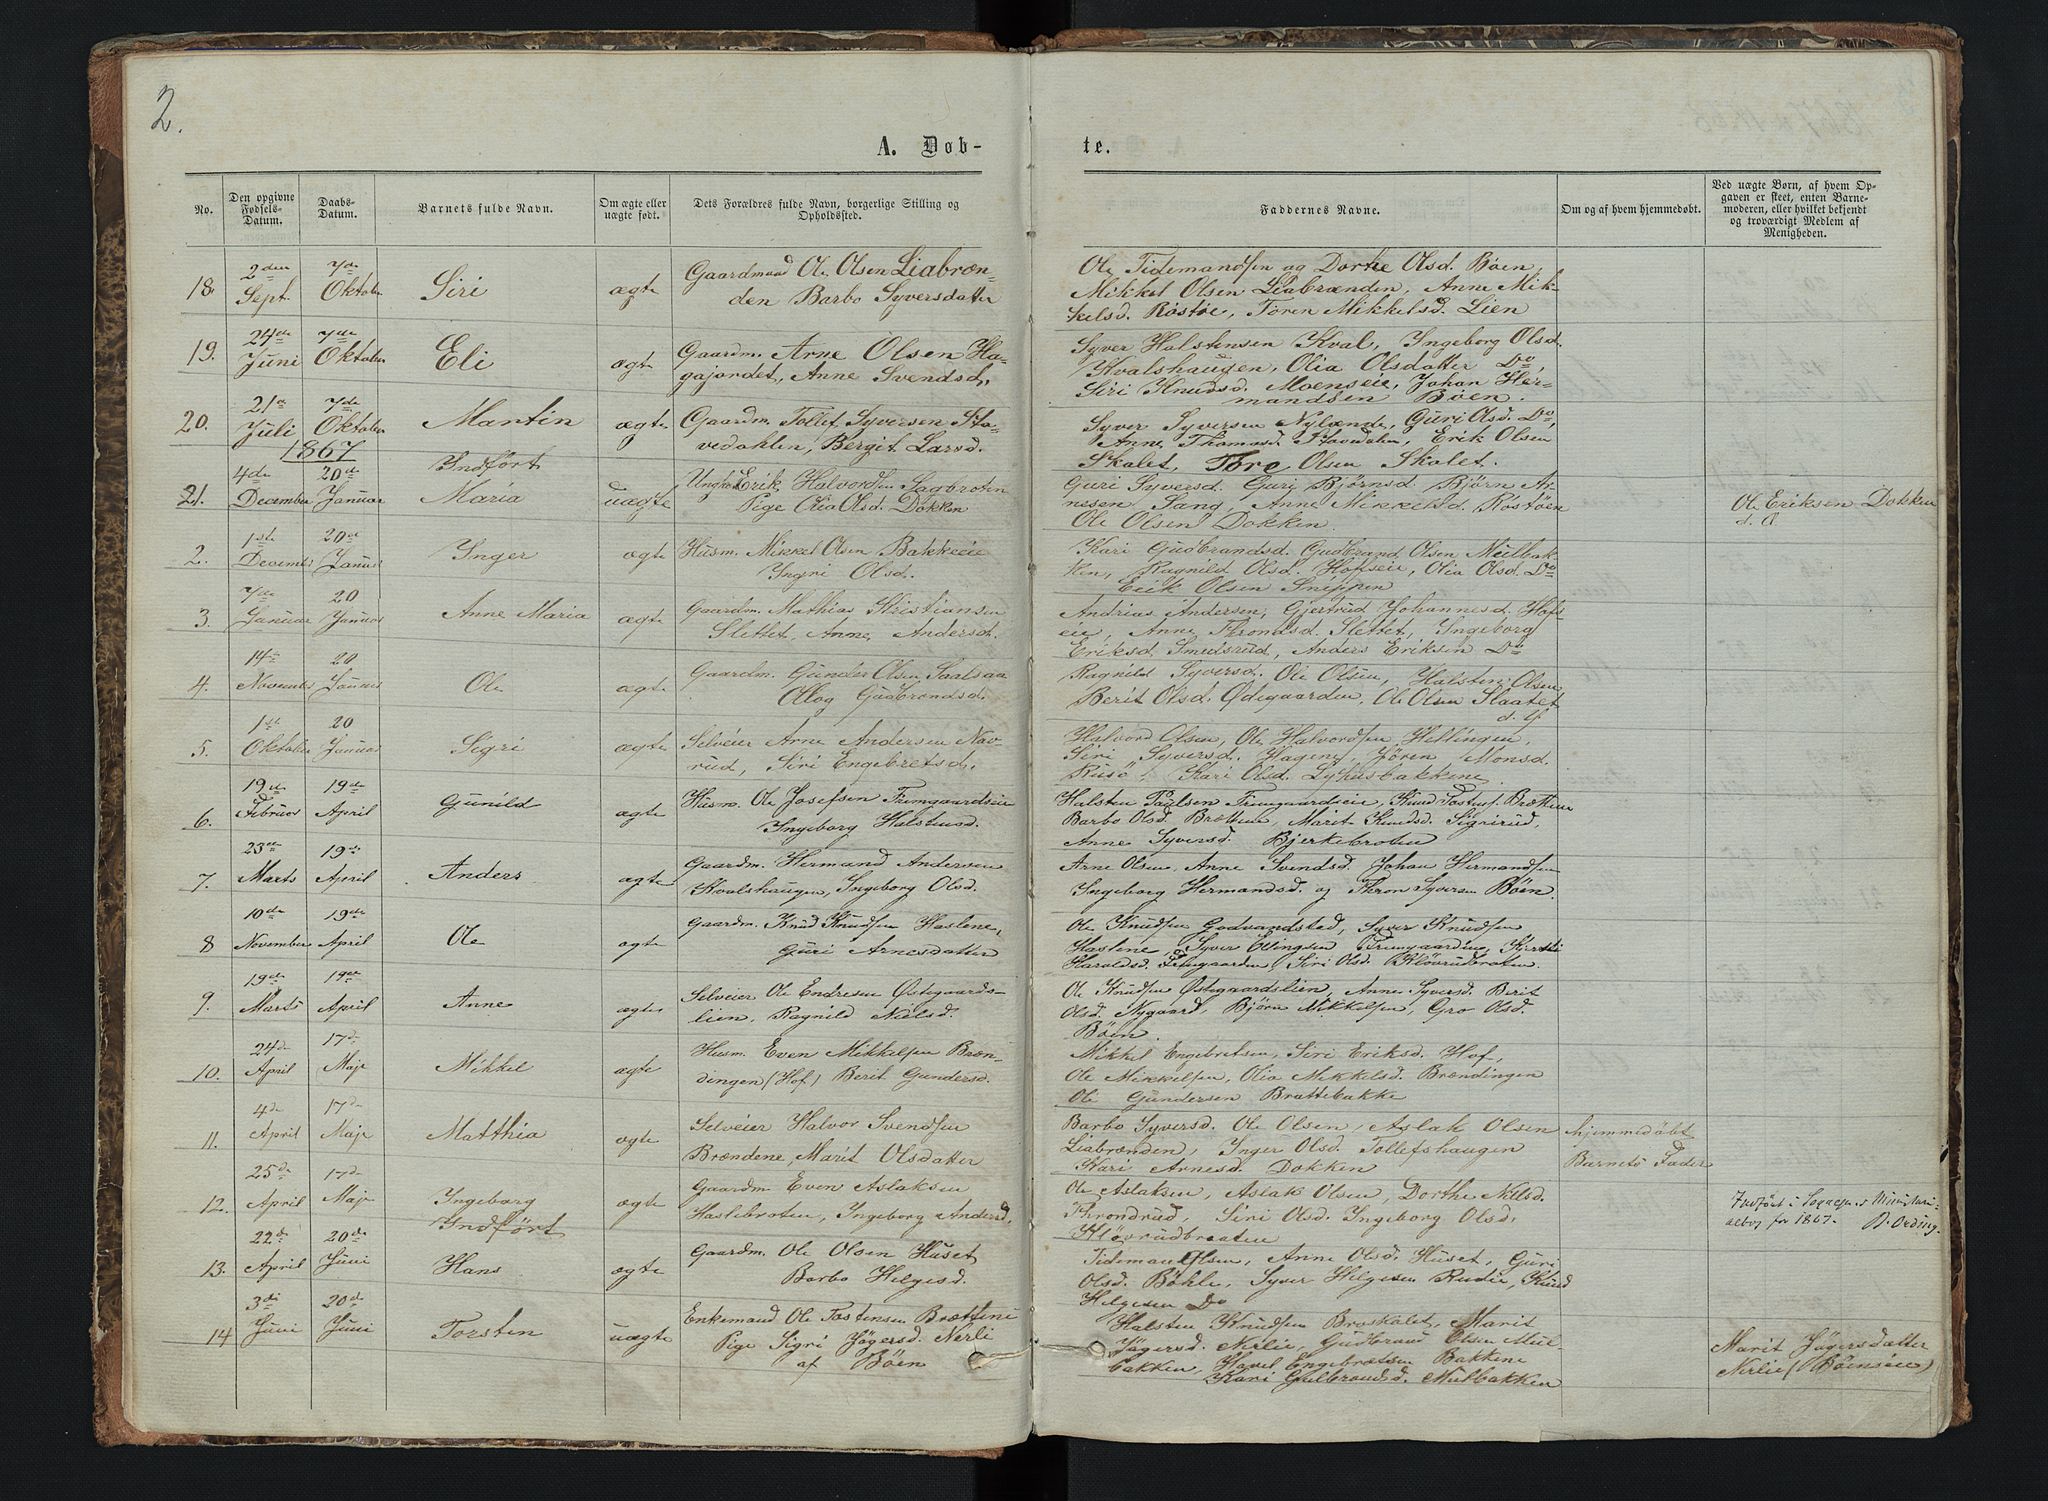 2.
A. Døb-
te.
No.
Den opgivne Fødsels-Datum.
Daabs-Datum.
Barnets fulde Navn.
Om ægte eller uægte født.
Dets Forældres fulde Navn, borgerlige Stilling og Opholdssted.
Faddernes Navne.
Om og af hvem hjemmedøbt.
Ved uægte Børn, af hvem Op-
gaven er skeet, enten Barne-
moderen, eller hvilket bekjendt
og troværdigt Medlem af
Menigheden.
18. 2den Sept. 7de Oktober Siri ægte Gaardmand Ole Olsen Liabræn-
den Barbo Syversdatter
Ole Tidemandsen og Dorthe Olsd. Bøen,
Mikkel Olsen Liabrænden, Anne Mik-
kelsd. Røstøe, Toren Mikkelsd. Lien
19. 24de Juni 7de Oktober Eli ægte Gaardm. Arne Olsen Ha-
gajordet, Anne Svendsd.
Syver Halstensen Kval, Ingeborg Olsd.
Kvalshaugen, Olia Olsdatter Do,
Siri Knudsd. Moenseie, Johan Her-
mandsen Bøen.
20. 21de Juli 7de Oktober Martin ægte Gaardm. Tollef Syversen Sta-
vedahlen, Bergit Larsd.
Syver Syversen Nylænde, Guri Olsd. Do,
Anne Thomasd. Stavedalen, Erik Olsen
Skalet, Tore Olsen Skalet.
1867
Indført
21. 4de December 20de Januar Maria uægte Ungk. Erik Halvordsen Sagbroten
Pige Olia Olsd. Dokken
Guri Syversd. Guri Bjørnsd. Bjørn Ar-
nesen Sang, Anne Mikkelsd. Røstøen
Ole Olsen Dokken
Ole Eriksen Dokken
2. 1ste Decembr 20de Januar Inger ægte Husm. Mikkel Olsen Bakkeeie
Ingri Olsd.
Kari Gudbrandsd. Gudbrand Olsen Mulbak-
ken, Ragnild Olsd. Hofseie, Olia Olsd. Do
Erik Olsen Snippen
3. 7de Januar 20 Januar Anne Maria ægte Gaardm. Mathias Kristiansen
Slettet, Anne Andersd.
Andrias Andersen, Gjertrud Johannesd. Hofs-
eie, Anne Throndsd. Slettet, Ingeborg
Eriksd. Smedsrud, Anders Eriksen Do
4. 14de Novembr 20 Januar Ole ægte Gaardm. Gunder Olsen Saalsaa
Olog Gudbrandsd.
Ragnild Syversd. Ole Olsen, Halsten Olsen
Berit Olsd. Ødegaarden, Ole Olsen Slaatet
5. 1ste Oktober 20 Januar Sigri ægte Selveier Arne Andersen Nav-
rud, Siri Engebretsd.
Halvord Olsen, Ole Halvordsen Hellingen,
Siri Syversd. Hagene, Jøren Monsd.
Kari Olsd.
6. 19de Februar 19de April Gunild ægte Husm. Ole Josefsen Frimgaardseie
Ingeborg Halstensd.
Halsten Paulsen Frimgaardseie, Knud Tostens. Brættene
Barbo Olsd. Brættene, Marit Knudsd. Sigrirud,
Anne Syversd. Bjerkebroten
7. 23de Marts 19de April Anders ægte Gaardm. Hermand Andersen
Kvalshaugen, Ingeborg Olsd.
Arne Olsen, Anne Svendsd. Johan Hermandsen
Ingeborg Hermandsd. og Thron Syversen Bøen.
8 10de November 19de April Ole ægte Gaardm. Knud Knudsen Haslene,
Guri Arnesdatter
Ole Knudsen Godvandsted, Syver Knudsen
Haslene, Syver Ellingsen Frimgaardene,
Haroldsd. Frimgaarden, Siri Olsd. Kløvrudbroten.
9. 19de Marts 19de April Anne ægte Selveier Ole Endresen Østegaards-
lien, Ragnild Nielsd.
Ole Knudsen Østegaardslien, Anne Syversd. Berit
Olsd. Nygaard, Bjørn Mikkelsen, Gro Olsd.
Bøen.
10. 24de April 17de Maje Mikkel ægte Husm. Even Mikkelsen Bræn-
dingen (Hof) Berit Gundersd.
Mikkel Engebretsen, Siri Eriksd. Hof,
Ole Mikkelsen, Olia Mikkelsd. Brændingen
Ole Gundersen Brattebakke
11. 4de April 17de Maje Matthia ægte Selveier Halvor Svendsen
Brændene, Marit Olsdatter
Barbo Syversd. Ole Olsen, Aslak Olsen
Liabrænden, Inger Olsd. Tollefshaugen
Kari Arnesd. Dokken
hjemmedøbt
Barnets Fader
12. 25de April 17de Maje Ingeborg ægte Gaardm. Even Aslaksen
Haslebroten, Ingeborg Andersd.
Indført
Ole Aslaksen, Aslak Olsen, Dorthe Nilsd.
Throndrud, Siri Olsd. Ingeborg Olsd.
Kløvrudbraaten
Indført i Sognepr.s Ministeri-
albog for 1867. B. Ording.
13. 22de April 20de Juni Hans ægte Gaardm. Ole Olsen Huset
Barbo Helgesd.
Tidemand Olsen, Anne Olsd. Huset, Guri
Olsd. Bøhle, Syver Helgesen Rudie, Knud
Helgesen Do
14 3de Juni 20de Juni Torsten uægte Enkemand Ole Tostensen Brættene
Pige Sigri Jøgersd. Nerli
af Bøen
Halsten Knudsen Broskalet, Marit
Jøgersd. Nerlie, Gudbrand Olsen Mul-
bakken, Havel Engebretsen Bakkene
Kari Gulbrandsd. Mulbakken
Marit Jøgersdatter
Nerlie (Bøenseie)